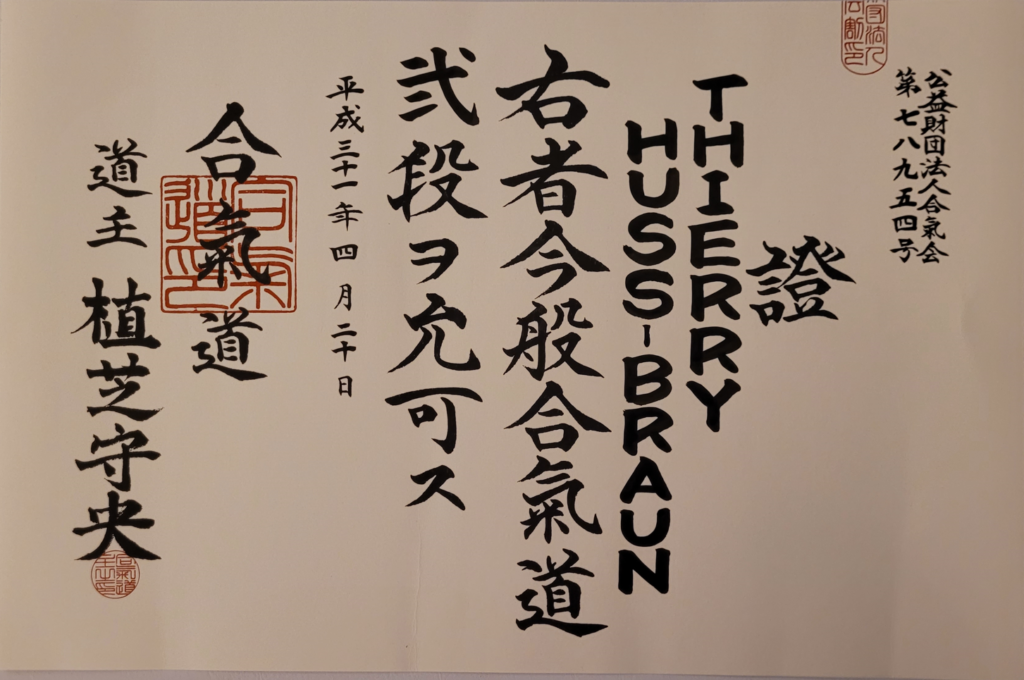 公益財団法人合氣会
第七八九五四号
證
THIERRY
HUSS-BRAUN
右者今般合氣道
弐段ヲ允可ス
平成三十一年四月二十日
合氣道
道主 植芝守央